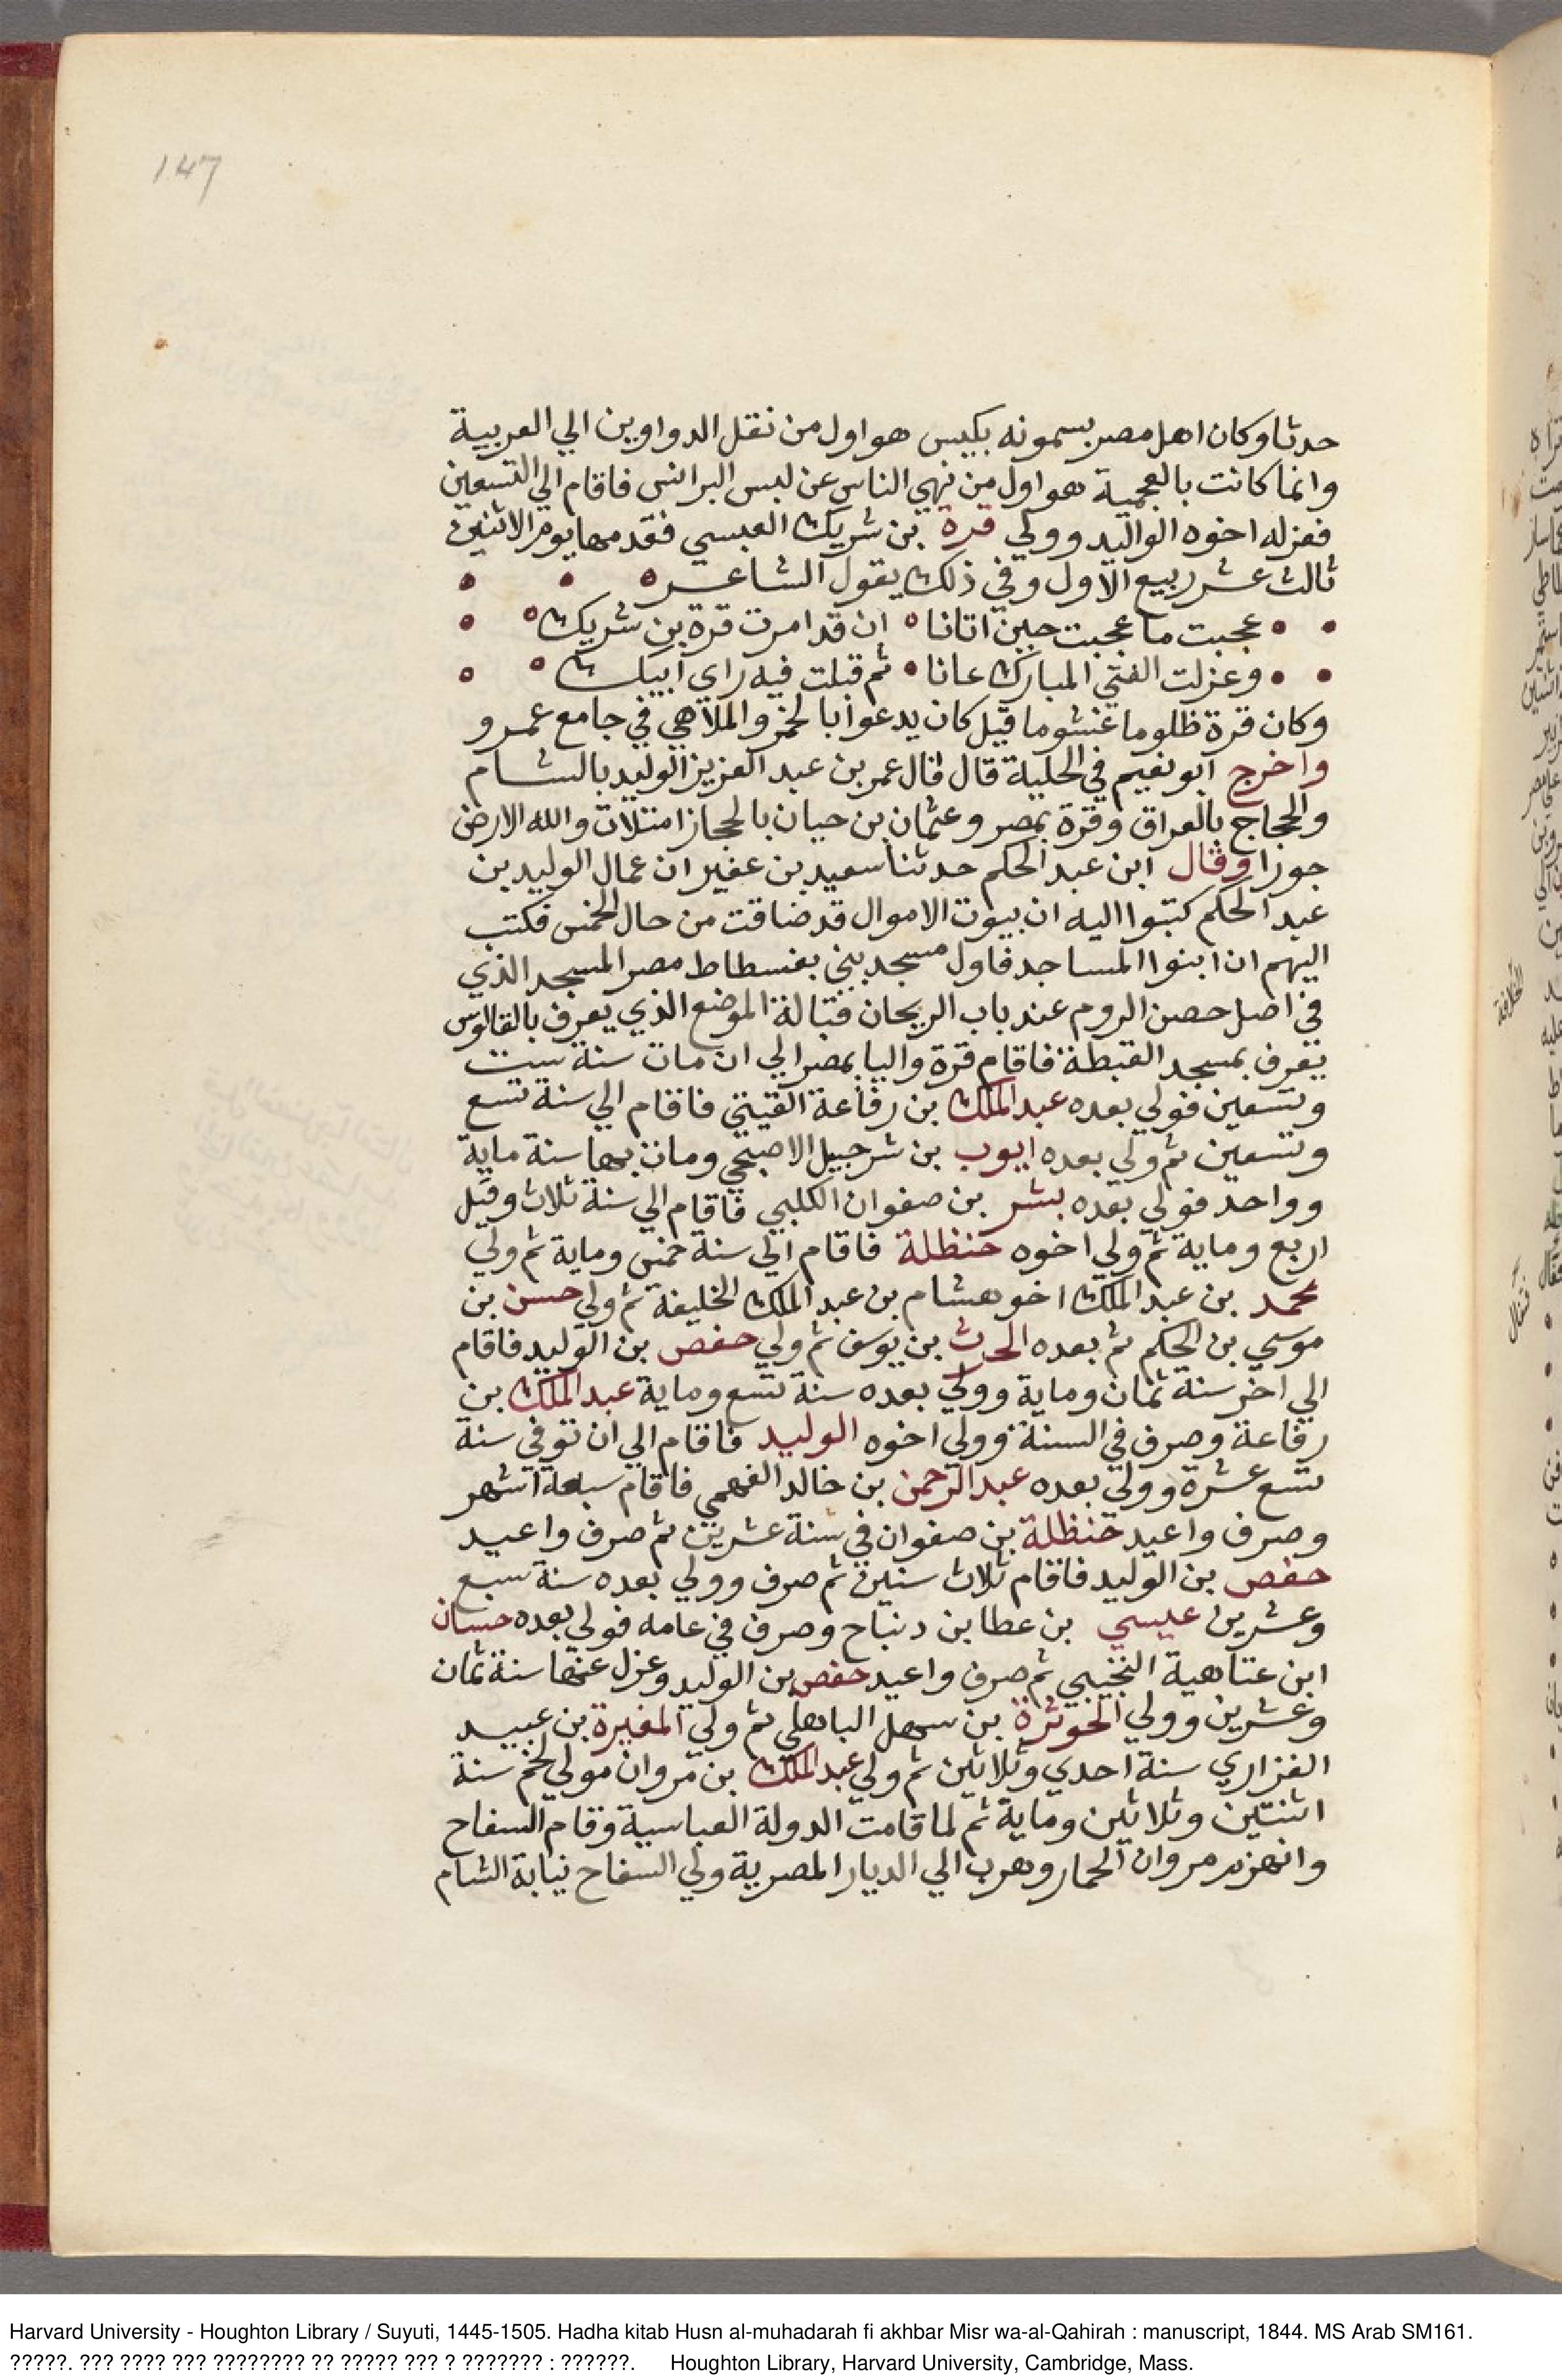 147
حدثا وكان اهل مصر يسمونه بكيس هو اول من نقل الدواوين الي العربية
وانما كانت بالعجمية هو اول من نهي الناس عن لبس البرانس فاقام الي التسعين
فعزله اخوه الواليد وولي قرة بن شريك العبسي فقدمها يوم الاثنين
ثالث عشر ربيع الاول وفي ذلك يقول الشاعر
عجبت ما عجبت حين اتانا ان قد امرت قرة بن شريك
وعزلت الفتي المبارك عانا ثم قبلت فيه راي ابيك
وكان قرة ظلوما غشوما قيل كان يدعوا بالخمر والملاهي في جامع عمرو
واخرج ابو نعيم في الحلية قال قال عمر بن عبد العزيز الوليد بالشام
والحجاج بالعراق وقرة بمصر وعثمان بن حيان بالحجاز امتلات والله الارض
جورا وقال ابن عبد الحكم حدثنا سعيد بن عفير ان عمال الوليد بن
عبد الحكم كتبوا اليه ان بيوت الاموال قد ضاقت من حال الخمس فكتب
اليهم ان ابنوا المساجد فاول مسجد بني بفسطاط مصر المسجد الذي
في اصل حصن الروم عند باب الريحان قبالة الموضع الذي يعرف بالقالوس
يعرف بمسجد القبطة فاقام قرة واليا بمصر الي ان مات سنة ست
وتسعين فولي بعده عبد الملك بن رفاعة القيتي فاقام الي سنة تسع
وتسعين ثم ولي بعده ايوب بن شرجبيل الاصبحي ومات بها سنة ماية
وواحد فولي بعده بشر بن صفوان الكلبي فاقام الي سنة ثلاث وقيل
اربع وماية ثم ولي اخوه حنظلة فاقام الي سنة خمس وماية ثم ولي
محمد بن عبد الملك اخو هشام بن عبد الملك الخليفة ثم ولي حسن بن
موسي بن الحكم ثم بعده الحرث بن يوسف ثم ولي حفص بن الوليد فاقام
الي اخر سنة ثمان وماية وولي بعده سنة تسع وماية عبد الملك بن
رفاعة وصرف في السنة وولي اخوه الوليد فاقام الي ان توفي سنة
تسع عشرة وولي بعده عبد الرحمن بن خالد الفهمي فاقام سبعة اشهر
وصرف واعيد حنظلة بن صفوان في سنة عشرين ثم صرف واعيد
حفص بن الوليد فاقام ثلاث سنين ثم صرف وولي بعده سنة سبع
وعشرين عيسي بن عطا بن دنباح وصرف في عامه فولي بعده حسان
ابن عتاهية التجيبي ثم صرف واعيد حفص بن الوليد وعزل عنها سنة ثمان
وعشرين وولي الحوثرة بن سهل الباهلي ثم ولي المغيرة بن عبيد
الفزاري سنة احدي وثلاثين ثم ولي عبد الملك بن مروان مولي لخم سنة
اثنتين وثلاثين وماية ثم لما قامت الدولة العباسية وقام السفاح
وانهزم مروان الحمار وهرب الي الديار المصرية ولي السفاح نيابة الشام
Harvard University - Houghton Library / Suyuti, 1445-1505. Hadha kitab Husn al-muhadarah fi akhbar Misr wa-al-Qahirah : manuscript, 1844. MS Arab SM161.
?????. ??? ???? ??? ???????? ?? ????? ??? ? ??????? : ??????. Houghton Library, Harvard University, Cambridge, Mass.